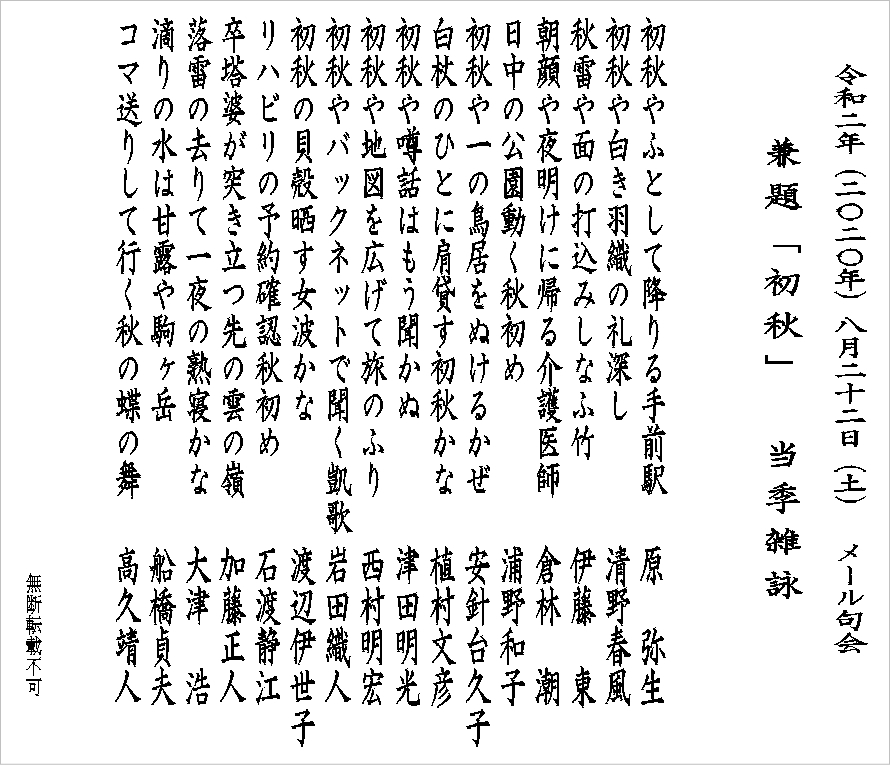 令和二年（二〇二〇年）八月二十二日（土）　メール句会
兼題「初秋」　当季雑詠
初秋やふとして降りる手前駅　原　弥生
初秋や白き羽織の礼深し　清野春風
秋雷や面の打込みしなふ竹　伊藤　東
朝顔や夜明けに帰る介護医師　倉林　潮
日中の公園動く秋初め　浦野和子
初秋や一の鳥居をぬけるかぜ　安針台久子
白杖のひとに肩貸す初秋かな　植村文彦
初秋や噂話はもう聞かぬ　津田明光
初秋や地図を広げて旅のふり　西村明宏
初秋やバックネットで聞く凱歌　岩田織人
初秋の貝殻晒す女波かな　渡辺伊世子
リハビリの予約確認秋初め　石渡静江
卒塔婆が突き立つ先の雲の嶺　加藤正人
落雷の去りて一夜の熟寝かな　大津　浩
滴りの水は甘露や駒ヶ岳　船橋貞夫
コマ送りして行く秋の蝶の舞　高久靖人
無断転載不可